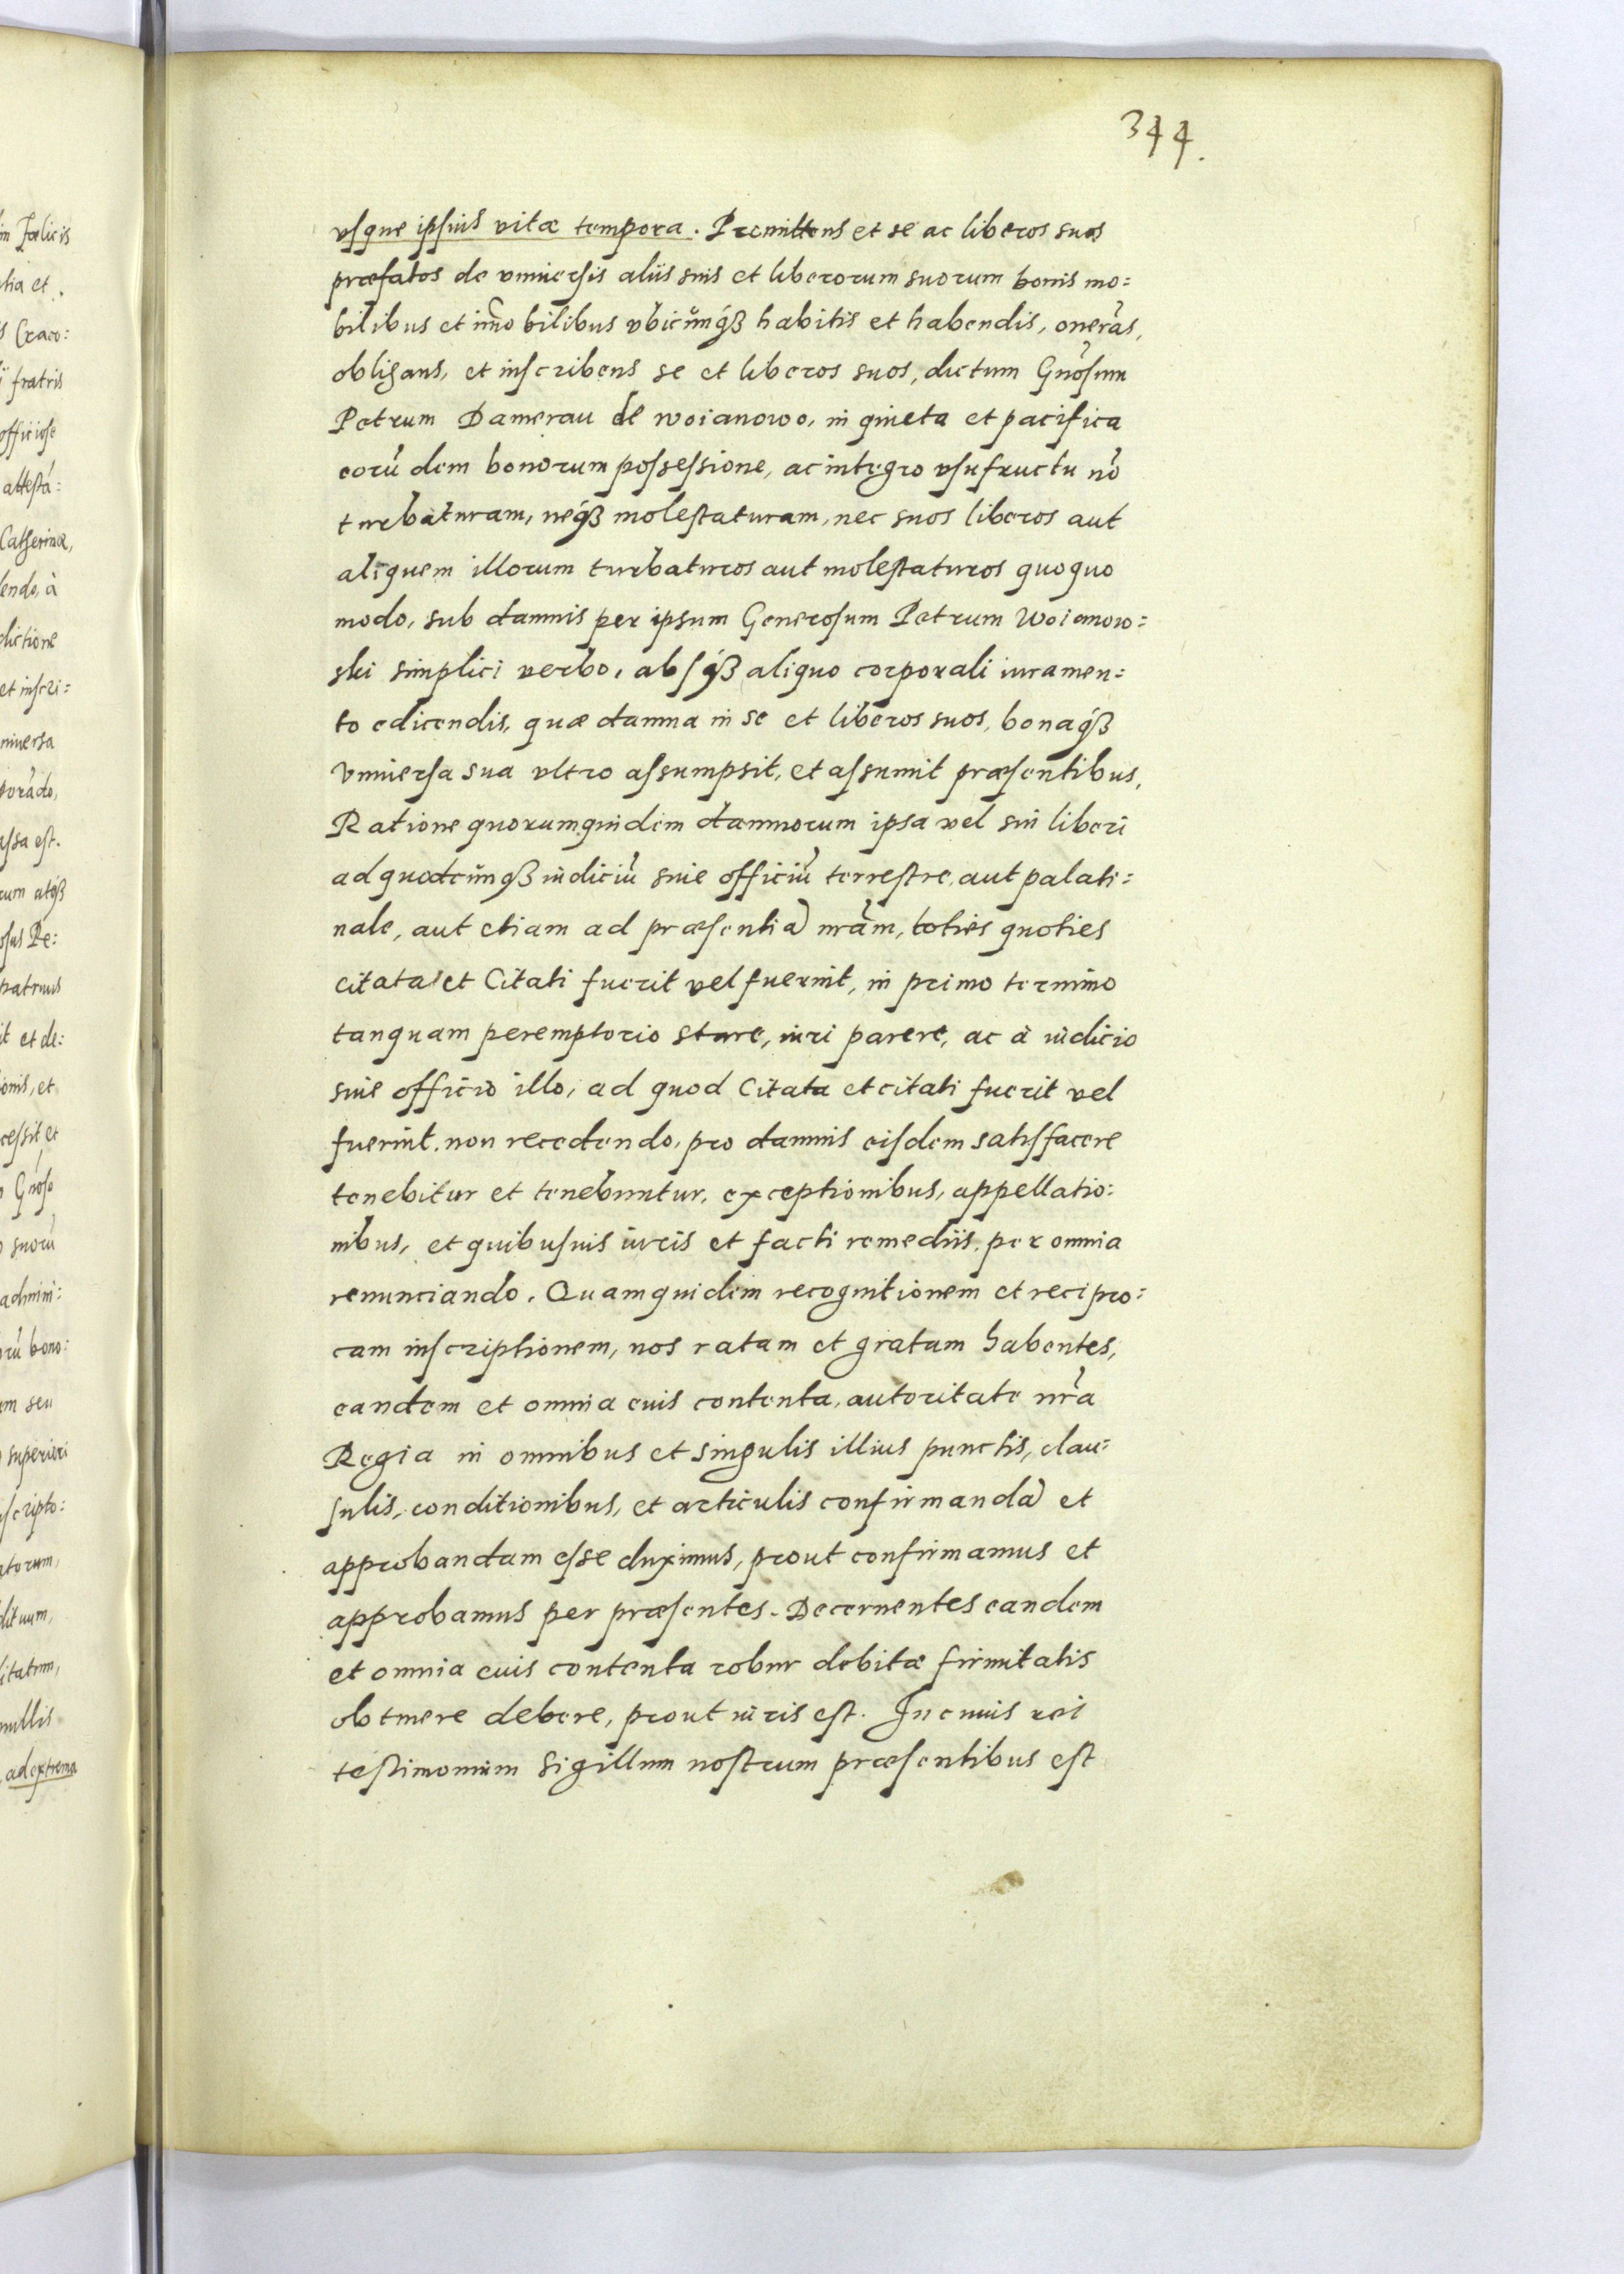 344.
vsque ipsius vitæ tempora. Promittens et se ac liberos suos
præfatos de vniuersis aliis suis et liberorum suorum bonis mo=
bilibus et im̄obilibus vbicūnq́ꝫ habitis et habendis, onerãs,
obligans, et inscribens se et liberos suos, dictum Gnõsum
Petrum Damerau de Woianowo, in quieta et pacifica
eorũdem bonorum possessione, ac integro vsufructu nõ
turbaturam, neq́ꝫ molestaturam, nec suos liberos aut
aliquem illorum turbaturos aut molestaturos quoquo
modo, sub damnis per ipsum Generosum Petrum Woianow=
ski simplici verbo, absq́ꝫ aliquo corporali iuramen=
to edicendis, quæ damna in se et liberos suos, bonaq́ꝫ
vniuersa sua vltro assumpsit, et assumit præsentibus,
Ratione quorumquidem damnorum ipsa vel sui liberi
ad quodcūnqꝫ iudiciũ siue officiũ terrestre, aut palati=
nale, aut etiam ad præsentiã nrãm, toties quoties
citata et Citati fuerit vel fuerint, in primo termino
tanquam peremptorio stare, iuri parere, ac à iudicio
siue officio illo, ad quod Citata et citati fuerit vel
fuerint, non recedendo, pro damnis eisdem satisfacere
tenebitur et tenebuntur, exceptionibus, appellatio=
nibus, et quibusuis iuris et facti remediis, per omnia
renunciando. Quamquidem recognitionem et recipro=
cam inscriptionem, nos ratam et gratam habentes,
eandem et omnia euis contenta, autoritate nrã
Regia in omnibus et singulis illius punctis, clau=
sulis, conditionibus, et articulis confirmandã et
approbandam esse duximus, prout confirmamus et
approbamus per præsentes. Decernentes eandem
et omnia euis contenta robur debitæ firmitatis
obtinere debere, prout iuris est. In cuius rei
testimonium Sigillum nostrum præsentibus est